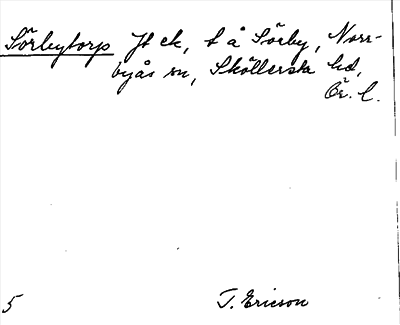 Sörbytorp Jb ck, t å Sörby, Norr-
byås sn, Sköllersta hd,
Ör. l.
5 T. Ericson